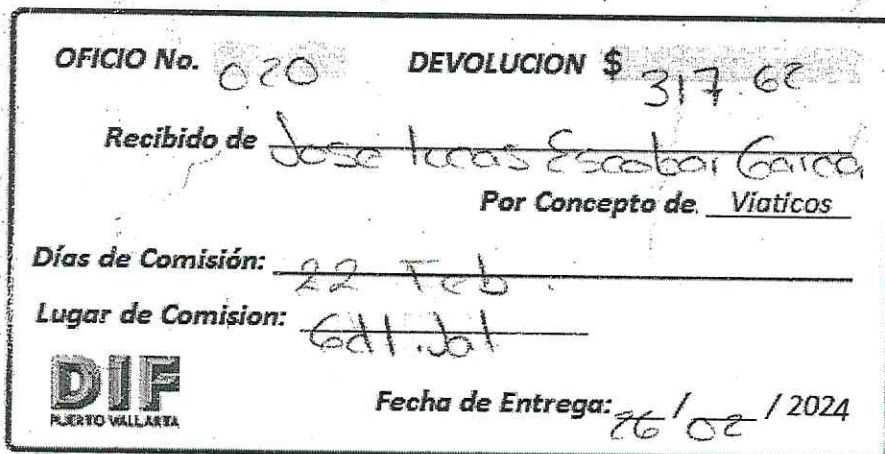 OFICIO No. 020 DEVOLUCION $ 317.62
Recibido de Jose lucas Escobar Garcia
Por Concepto de Viaticos
Días de Comisión: 22 Feb.
Lugar de Comision: Gdl.Jal
DIF
PUERTO VALLARTA
Fecha de Entrega: 26 / 02 / 2024